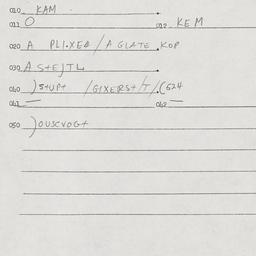 010 KAM
011 O 012 KEM
020 A PLI.XED / A GLATE KOP
030 A S+EJTL
040 )S+UP+ / GIXERS+/T/.(524
041 — 042 —
050 )OUSCVOG+